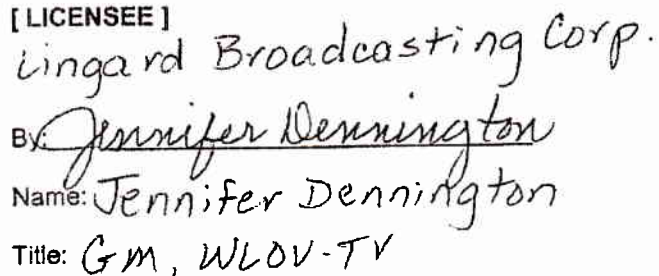 [ LICENSEE ]
Lingard Broadcasting Corp.
By: Jennifer Dennington
Name: Jennifer Dennington
Title: GM, WLOV-TV